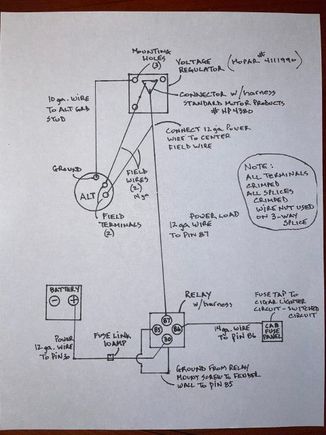 MOUNTING
HOLES
(3)
VOLTAGE
REGULATOR
(MOPAR # 4111990)
10 ga. WIRE
TO ALT GRD
STUD
CONNECTOR W/harness
STANDARD MOTOR PRODUCTS
# HP4380
CONNECT 12ga. POWER
WIRE TO CENTER
FIELD WIRE
GROUND
ALT
FIELD
WIRES
(2)
FIELD
TERMINALS
(2)
NOTE:
ALL TERMINALS
CRIMPED
ALL SPLICES
CRIMPED
WIRE NUT USED
ON 3-WAY
SPLICE
POWER, LOAD
12 ga. WIRE
TO PIN 87
BATTERY
- +
RELAY
w/harness
87
85
86
FUSE TAP TO
CIGAR LIGHTER
CIRCUIT - SWITCHED
CIRCUIT
14ga. WIRE
TO PIN 86
CAB
FUSE
PANEL
POWER
12 ga. WIRE
TO PIN 30
FUSE LINK
GROUND FROM RELAY
MOUNT SCREW TO FENDER
WALL TO PIN 85